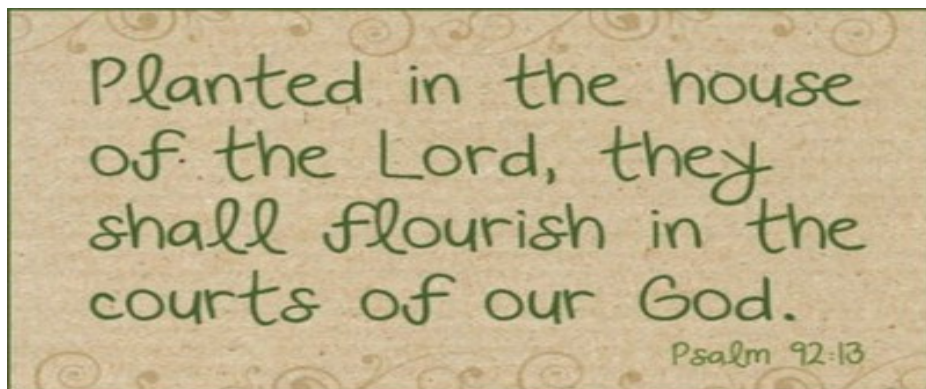 Planted in the house
of the Lord, they
shall flourish in the
courts of our God.
Psalm 92:13